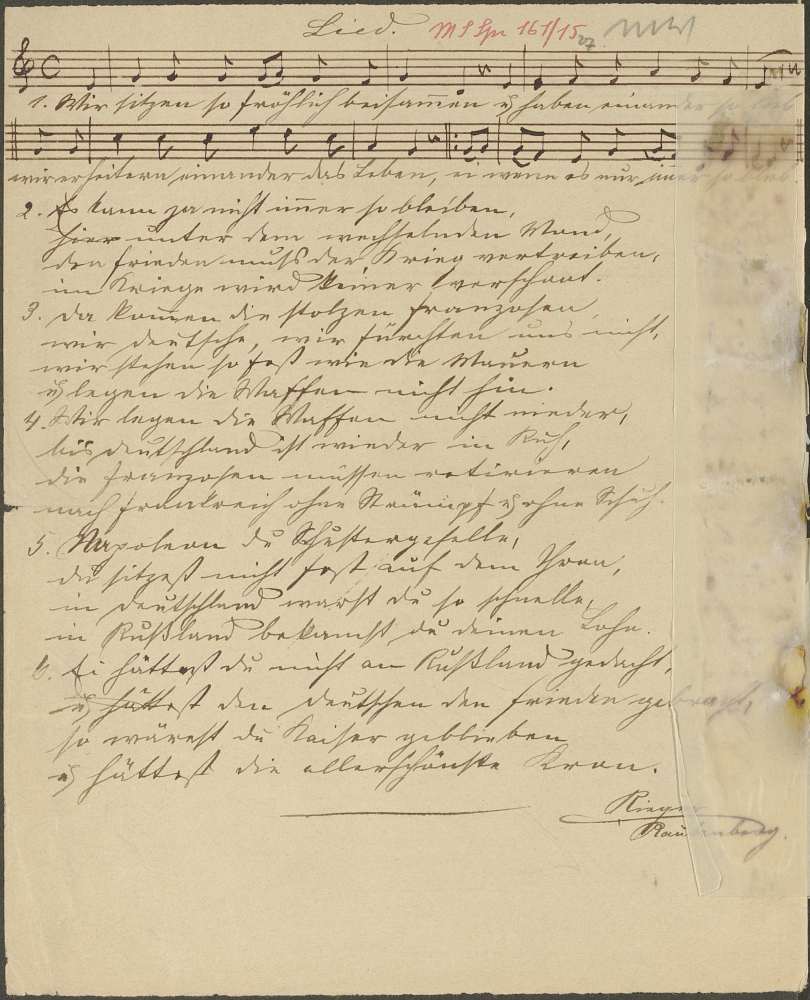 Lied. M S Spr 161/15
1. Wir sitzen so fröhlich beisam̄en u haben einander so lieb
wir erheitern einander das Leben, ei wenn es nur im̄er so blieb.
2. Es kann ja nicht im̄er so bleiben,
hier unter dem wechselnden Mond,
den Frieden muß der Krieg vertreiben,
im Kriege wird keiner verschont.
3. Da kom̄en die stolzen Franzosen,
wir Deutsche, wir fürchten uns nicht,
wir stehen so fest wie die Mauern
u legen die Waffen nicht hin.
4. Wir legen die Waffen nicht nieder,
bis Deutschland ist wieder in Ruh,
die Franzosen müssen retirieren
nach Frankreich ohne Strümpf u ohne Schuh.
5. Napoleon du Schustergeselle,
du sitzest nicht fest auf dem Thron,
in Deutschland warst du so schnelle,
in Rußland bekamst du deinen Lohn.
6. Ei hättest du nicht an Rußland gedacht,
u hättest den Deutschen den Frieden gebracht,
so wärest du Kaiser geblieben
u hättest die allerschönste Kron.
Rieger
Rautenberg.